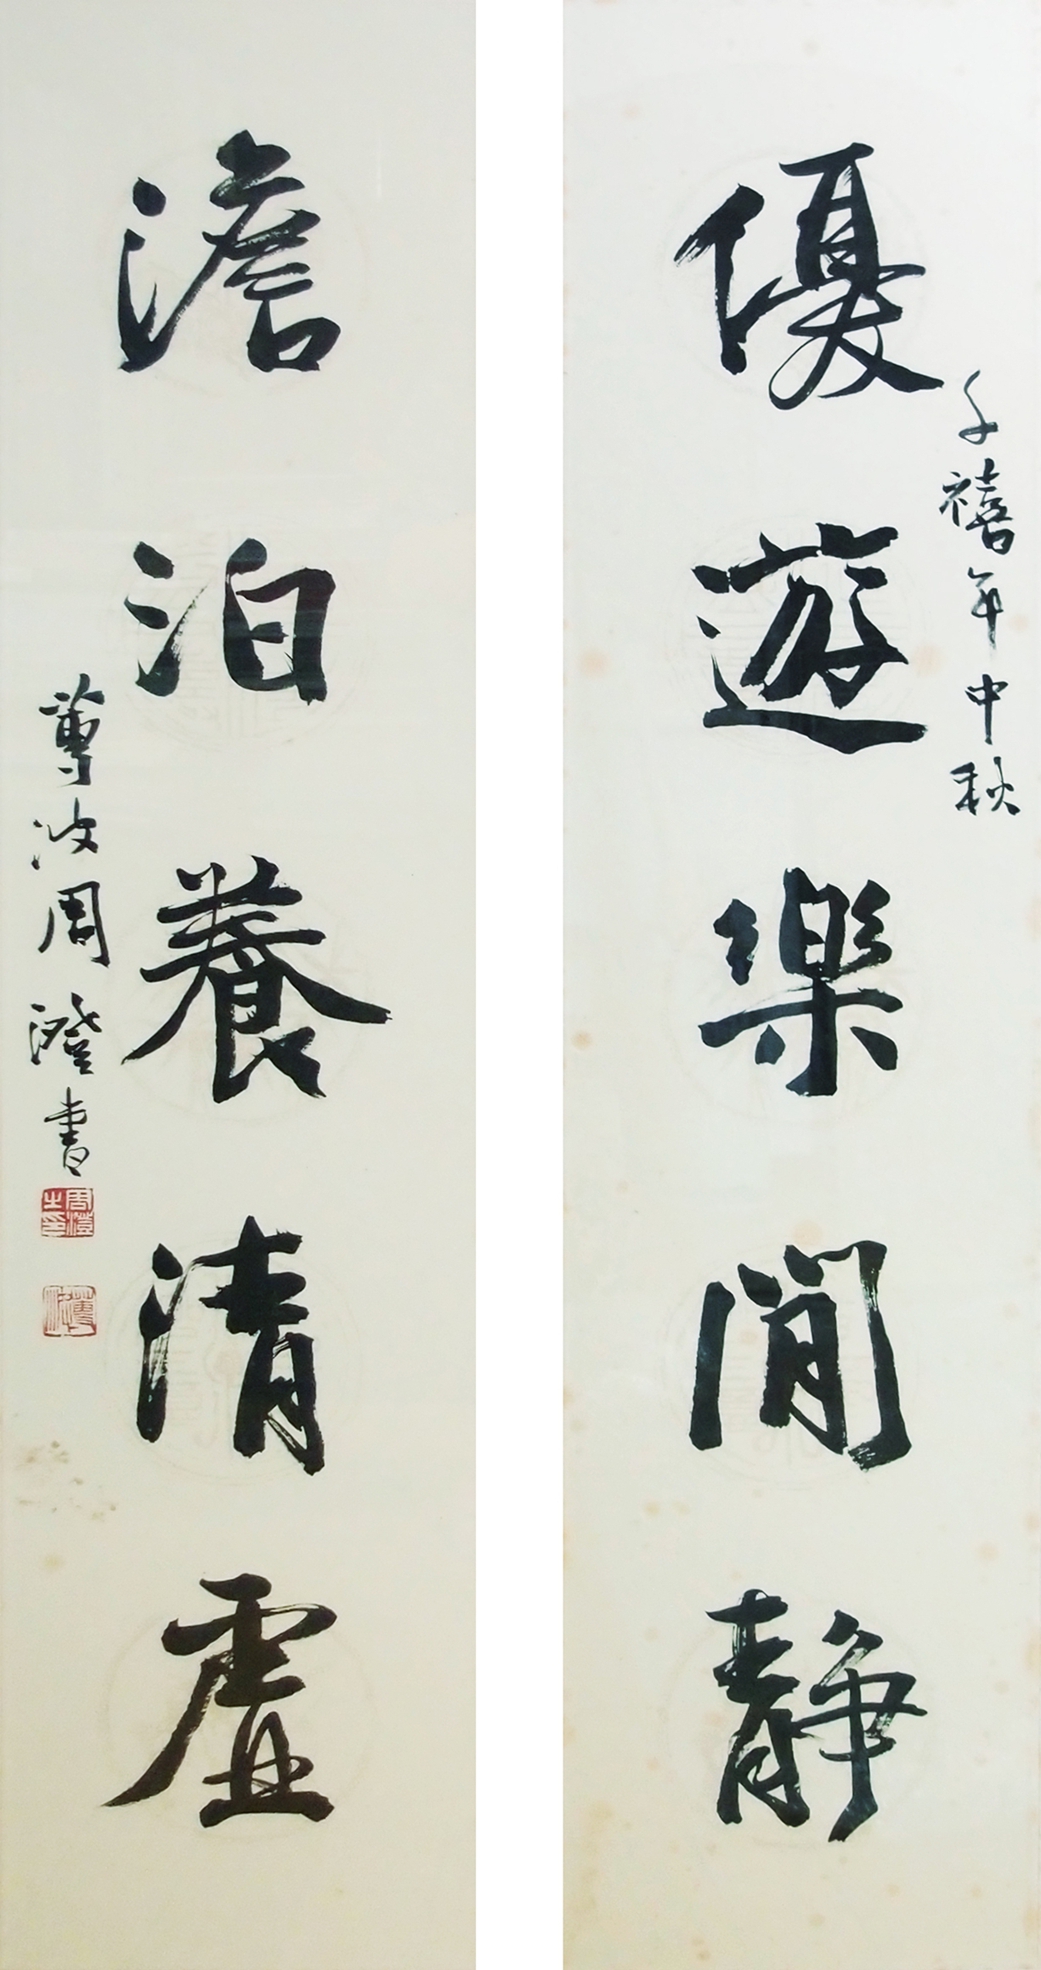 優遊樂閒靜
千禧年中秋
澹泊養清虛
蓴波周澄書
周澄之印
蓴波